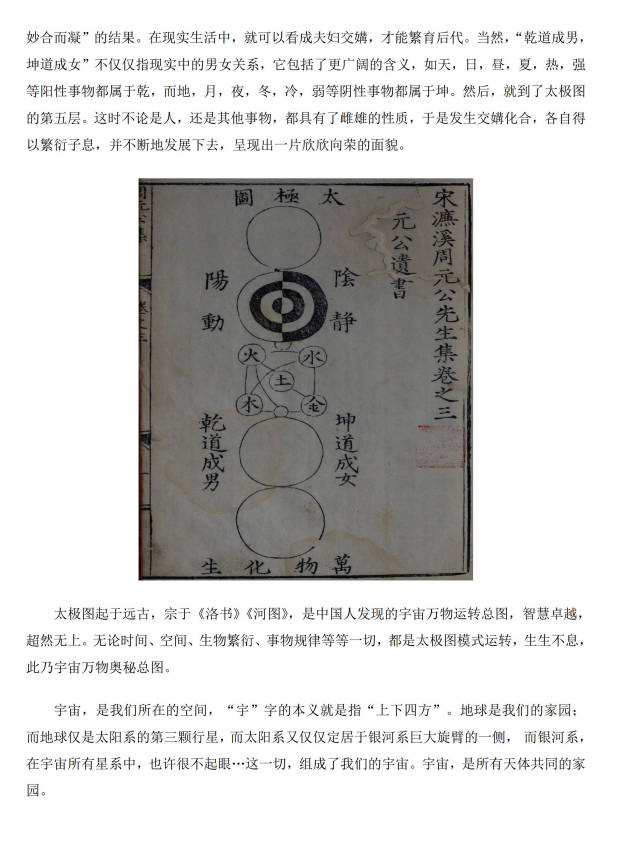 妙合而凝”的结果。在现实生活中，就可以看成夫妇交媾，才能繁育后代。当然，“乾道成男，
坤道成女”不仅仅指现实中的男女关系，它包括了更广阔的含义，如天，日，昼，夏，热，强
等阳性事物都属于乾，而地，月，夜，冬，冷，弱等阴性事物都属于坤。然后，就到了太极图
的第五层。这时不论是人，还是其他事物，都具有了雌雄的性质，于是发生交媾化合，各自得
以繁衍子息，并不断地发展下去，呈现出一片欣欣向荣的面貌。
宋濂溪周元公先生集卷之三
元公遺書
太極圖
陰静
陽動
火
水
土
木
金
坤道成女
乾道成男
萬物化生
太极图起于远古，宗于《洛书》《河图》，是中国人发现的宇宙万物运转总图，智慧卓越，
超然无上。无论时间、空间、生物繁衍、事物规律等等一切，都是太极图模式运转，生生不息，
此乃宇宙万物奥秘总图。
宇宙，是我们所在的空间，“宇”字的本义就是指“上下四方”。地球是我们的家园；
而地球仅是太阳系的第三颗行星，而太阳系又仅仅定居于银河系巨大旋臂的一侧， 而银河系，
在宇宙所有星系中，也许很不起眼…这一切，组成了我们的宇宙。宇宙，是所有天体共同的家
园。